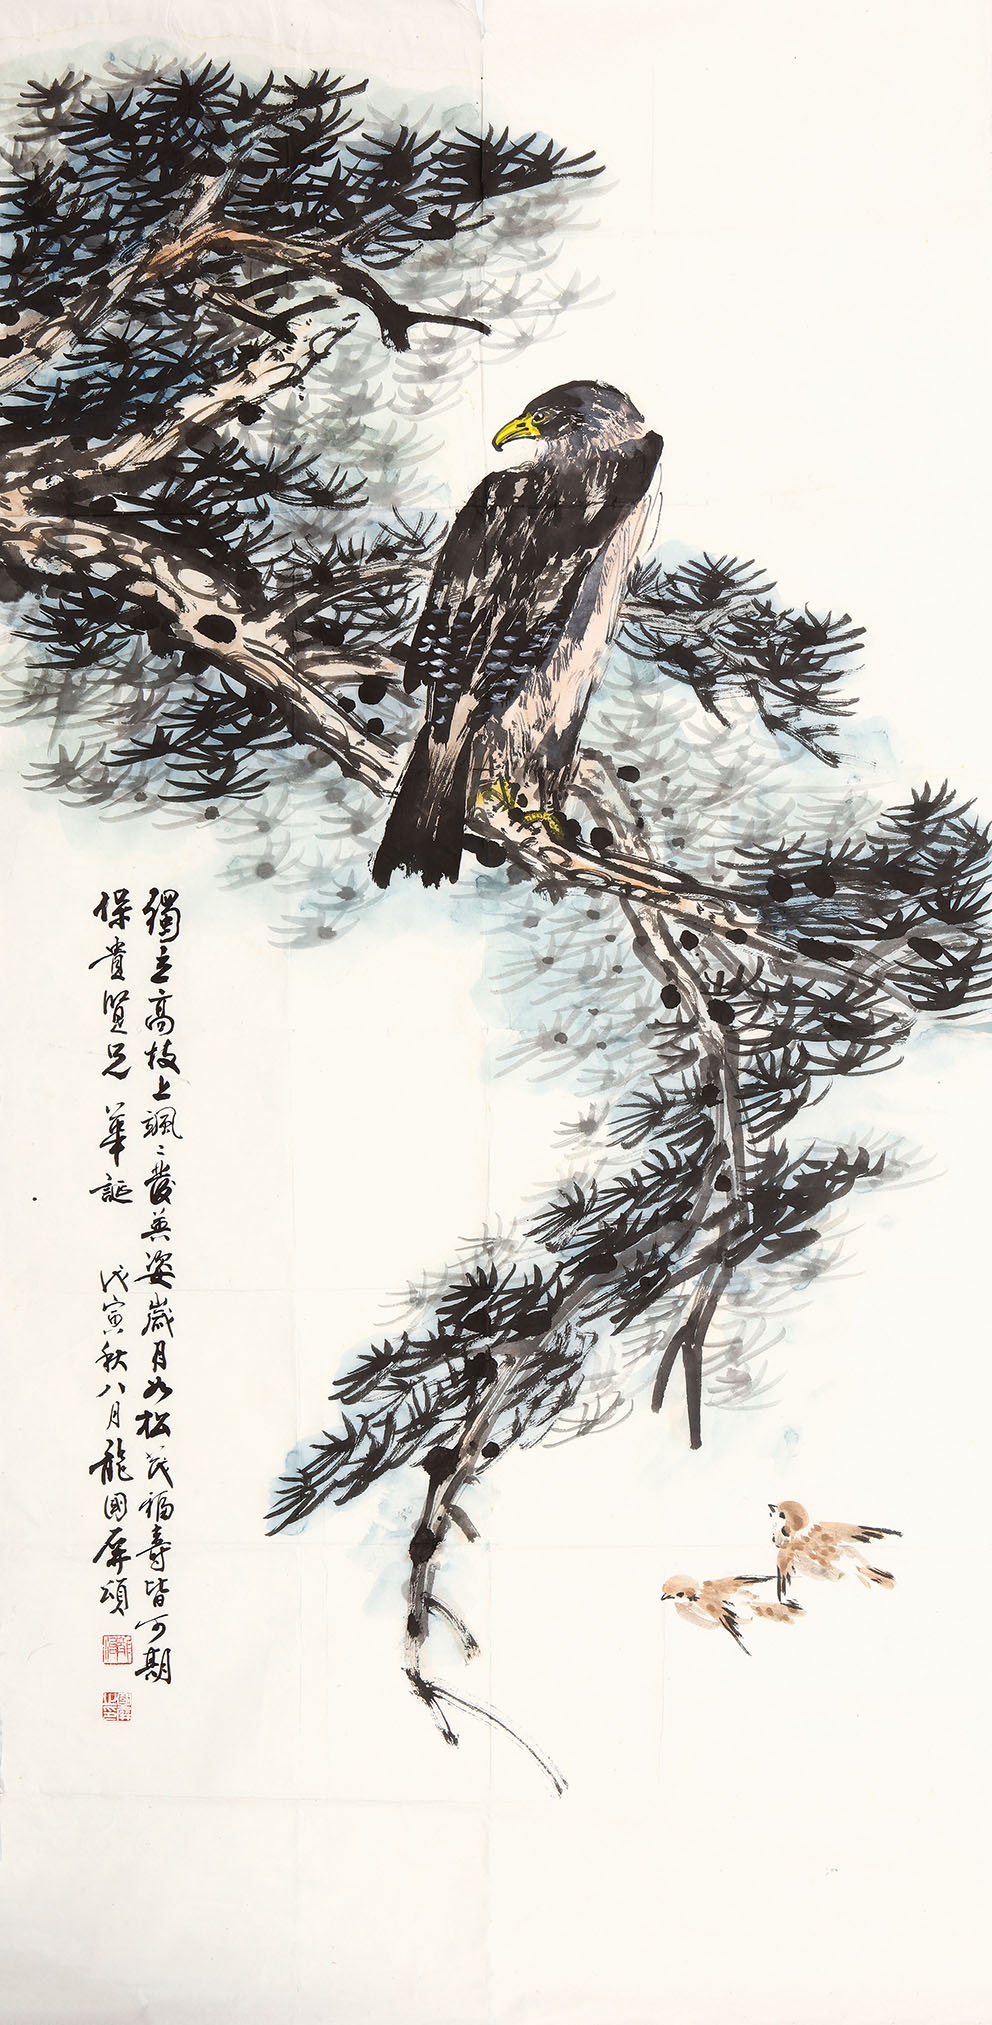 獨立高枝上颯〻發英姿歲月如松茂福壽皆可期
保貴賢兄 華誕 戊寅秋八月龍國屏頌